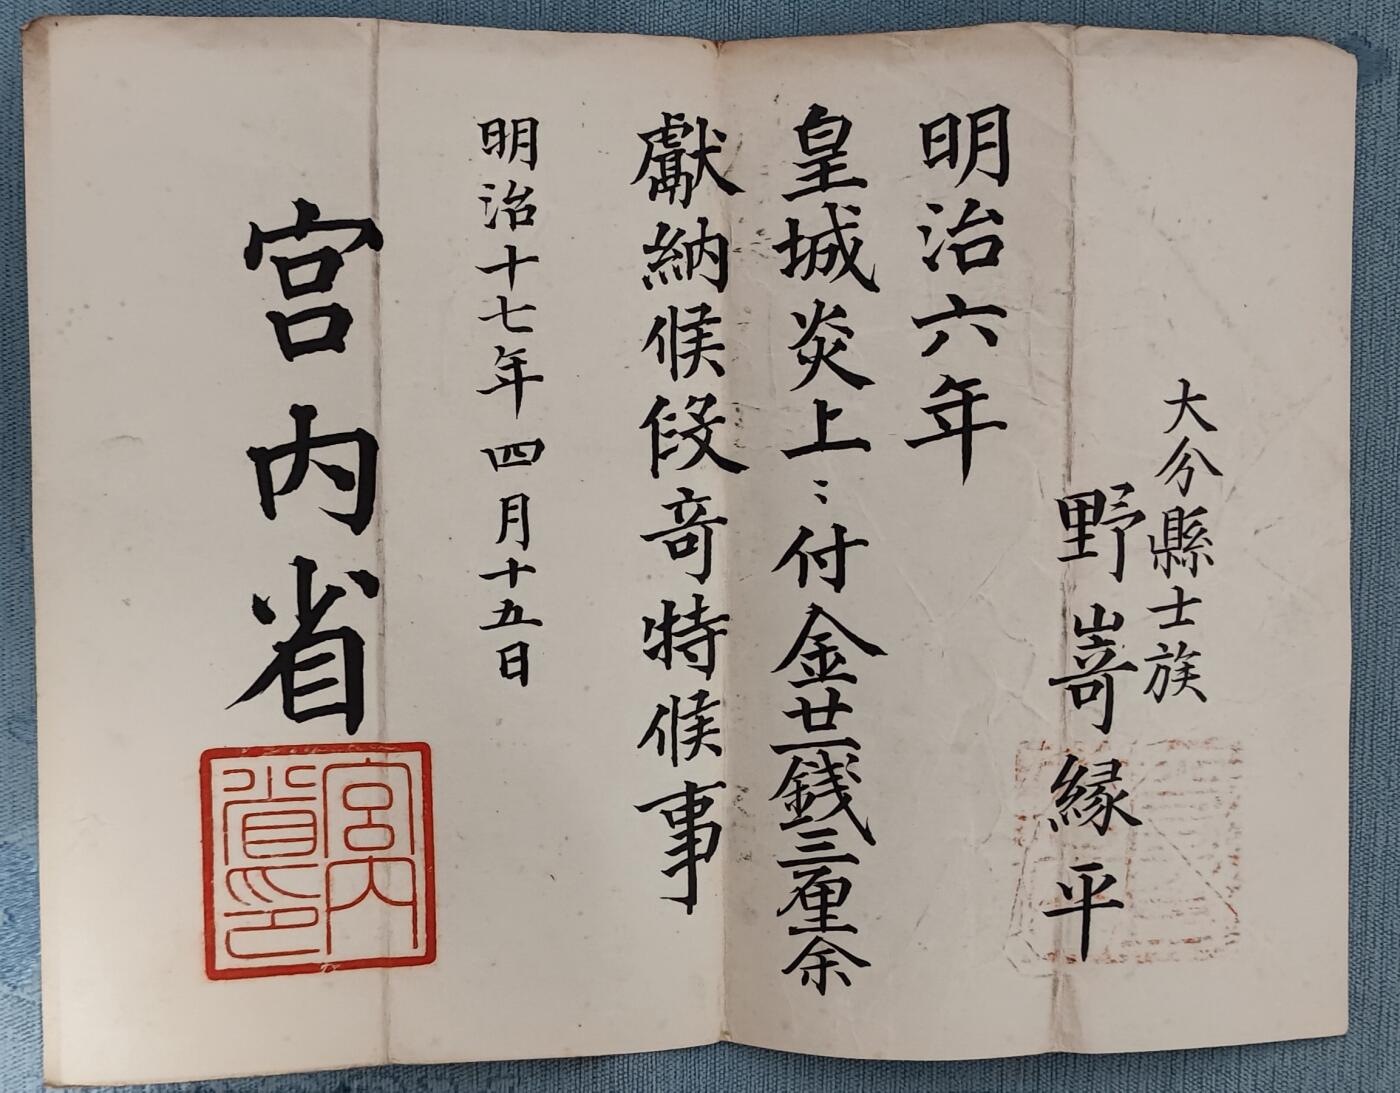 大分縣士族
野嵜縁平
明治六年
皇城炎上ニ付金廿一錢三厘余
獻納候段奇特候事
明治十七年四月十五日
宮内省
宮内省印